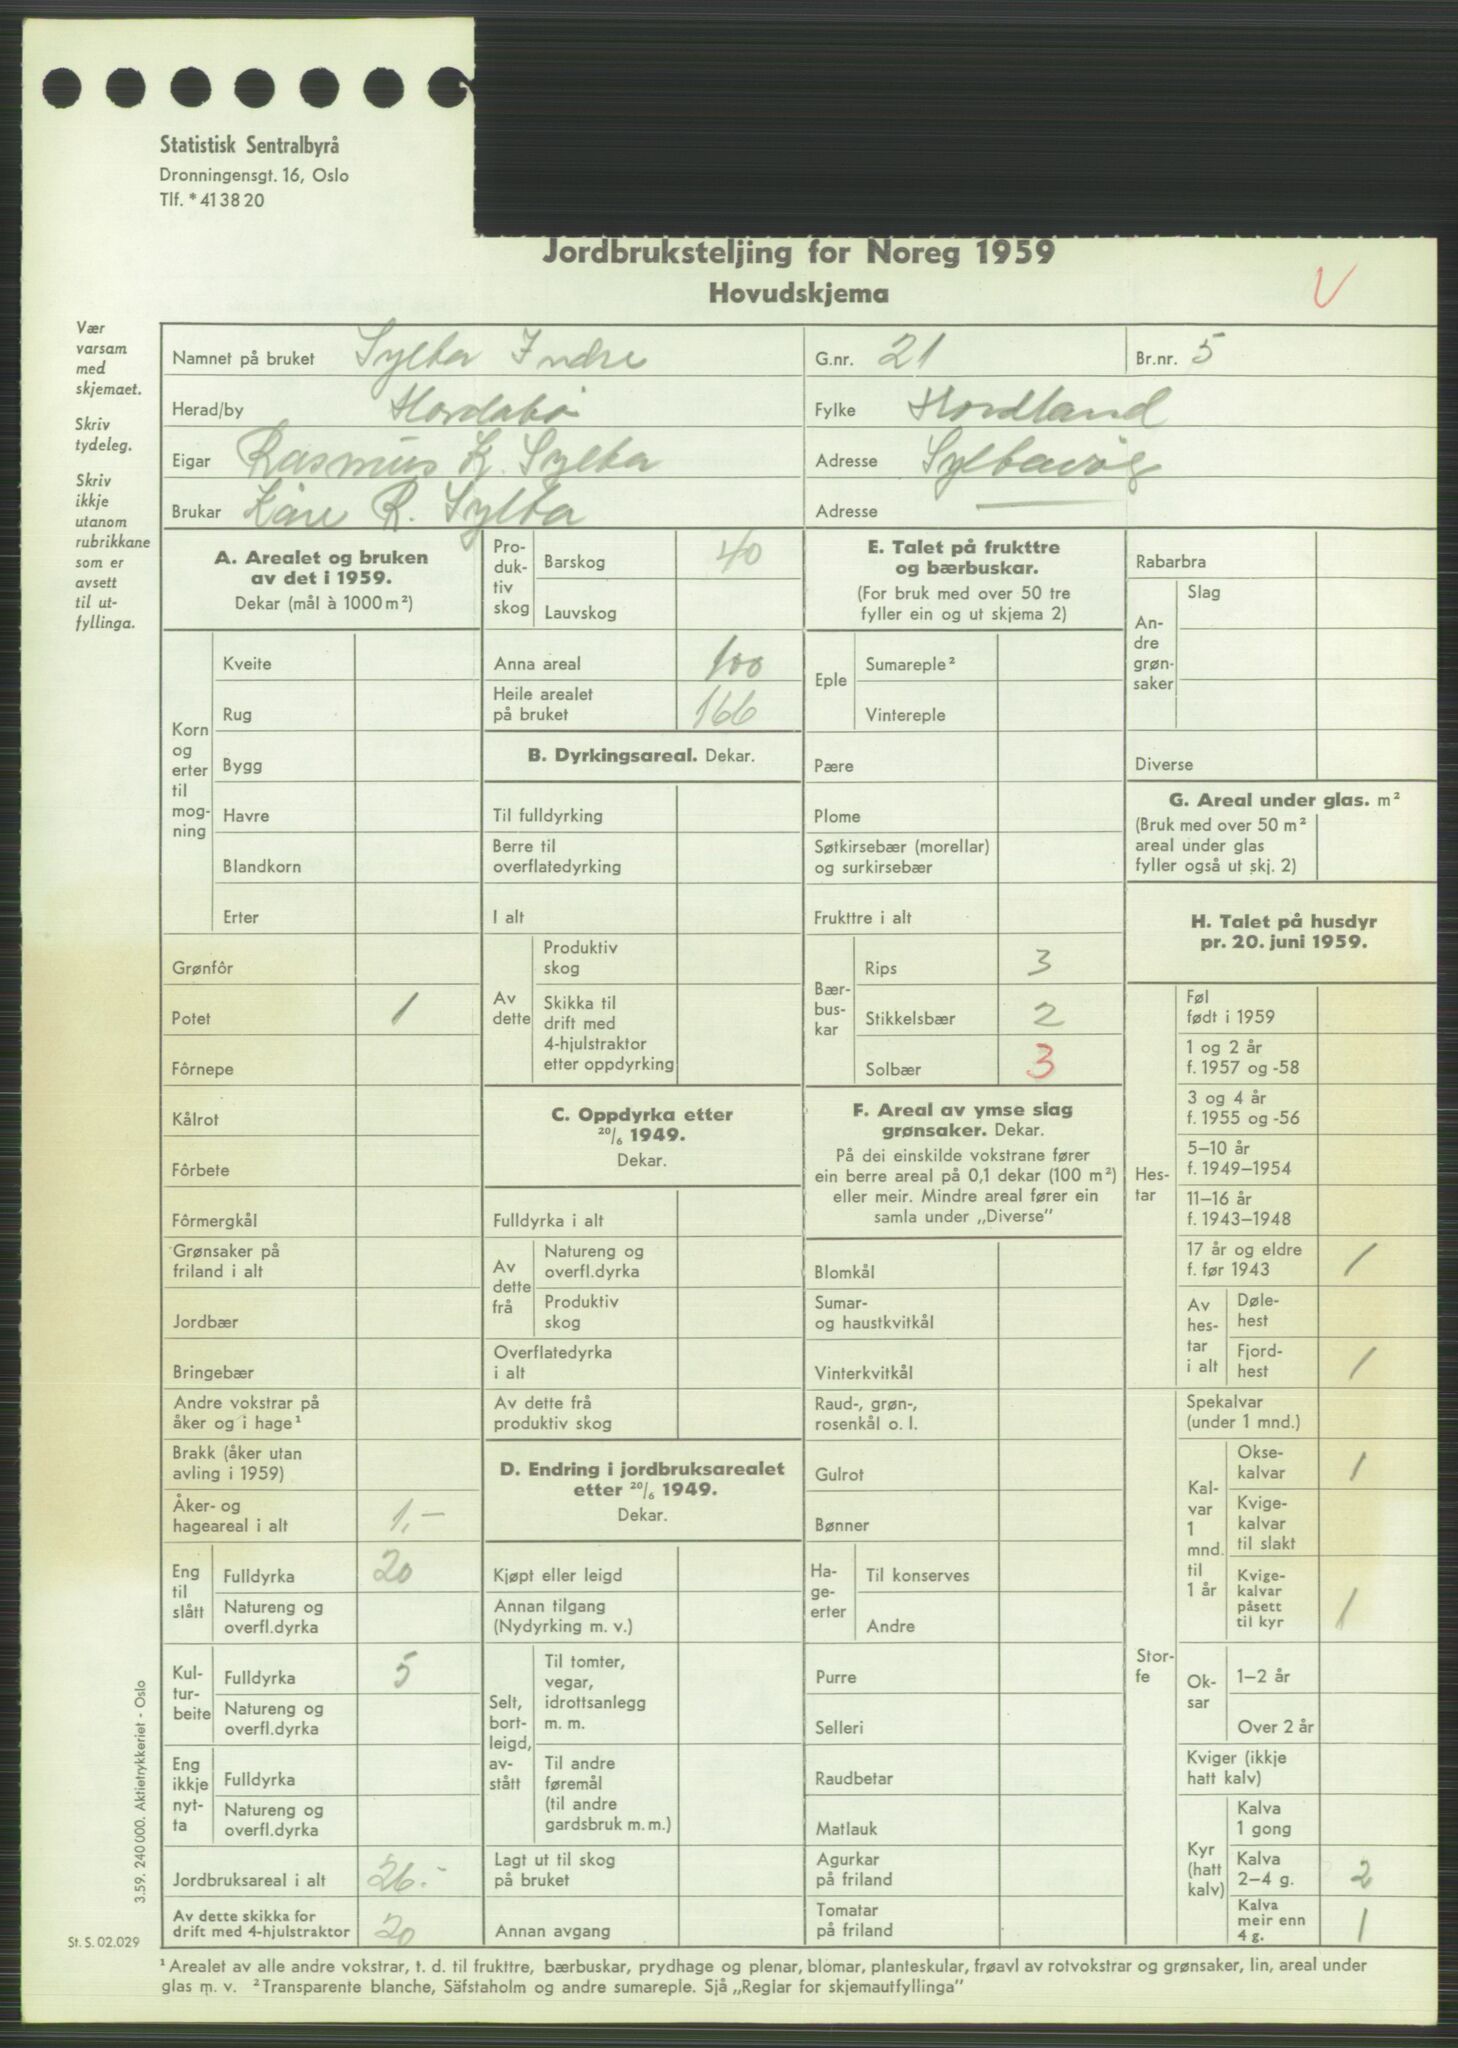 Statistisk Sentralbyrå
Dronningensgt. 16, Oslo
Tlf. * 41 38 20
Jordbruksteljing for Noreg 1959
Hovudskjema
V
Vær
varsam
med
skjemaet.
Skriv
tydeleg.
Skriv
ikkje
utanom
rubrikkane
som er
avsett
til ut-
fyllinga.
Namnet på bruket Sylta Indre G.nr. 21 Br.nr. 5
Herad/by Hordabø Fylke Hordland
Eigar Rasmus K. Sylta Adresse Syltavåg
Brukar Kåre R. Sylta Adresse —
A. Arealet og bruken
av det i 1959.
Dekar (mål à 1000 m²)
Korn
og
erter
til
mog-
ning
Kveite
Rug
Bygg
Havre
Blandkorn
Erter
Grønfôr
Potet 1
Fôrnepe
Kålrot
Fôrbete
Fôrmergkål
Grønsaker på
friland i alt
Jordbær
Bringebær
Andre vokstrar på
åker og i hage¹
Brakk (åker utan
avling i 1959)
Åker- og
hageareal i alt 1,-
Eng
til
slått
Fulldyrka 20
Natureng og
overfl.dyrka
Kul-
tur-
beite
Fulldyrka 5
Natureng og
overfl.dyrka
Eng
ikkje
nyt-
ta
Fulldyrka
Natureng og
overfl.dyrka
Jordbruksareal i alt 26.-
Av dette skikka for
drift med 4-hjulstraktor 20
Pro-
duk-
tiv
skog
Barskog 40
Lauvskog
Anna areal 100
Heile arealet
på bruket 166
B. Dyrkingsareal. Dekar.
Til fulldyrking
Berre til
overflatedyrking
I alt
Av
dette
Produktiv
skog
Skikka til
drift med
4-hjulstraktor
etter oppdyrking
C. Oppdyrka etter
20/6 1949.
Dekar.
Fulldyrka i alt
Av
dette
frå
Natureng og
overfl.dyrka
Produktiv
skog
Overflatedyrka
i alt
Av dette frå
produktiv skog
D. Endring i jordbruksarealet
etter 20/6 1949.
Dekar.
Kjøpt eller leigd
Annan tilgang
(Nydyrking m. v.)
Selt,
bort-
leigd,
av-
stått
Til tomter,
vegar,
idrottsanlegg
m. m.
Til andre
føremål
(til andre
gardsbruk m. m.)
Lagt ut til skog
på bruket
Annan avgang
E. Talet på frukttre
og bærbuskar.
(For bruk med over 50 tre
fyller ein og ut skjema 2)
Eple
Sumareple²
Vintereple
Pære
Plome
Søtkirsebær (morellar)
og surkirsebær
Frukttre i alt
Bær-
bus-
kar
Rips 3
Stikkelsbær 2
Solbær 3
F. Areal av ymse slag
grønsaker. Dekar.
På dei einskilde vokstrane fører
ein berre areal på 0,1 dekar (100 m²)
eller meir. Mindre areal fører ein
samla under „Diverse”
Blomkål
Sumar-
og haustkvitkål
Vinterkvitkål
Raud-, grøn-,
rosenkål o. l.
Gulrot
Bønner
Ha-
ge-
erter
Til konserves
Andre
Purre
Selleri
Raudbetar
Matlauk
Agurkar
på friland
Tomatar
på friland
Rabarbra
An-
dre
grøn-
saker
Slag
Diverse
G. Areal under glas. m²
(Bruk med over 50 m²
areal under glas
fyller også ut skj. 2)
H. Talet på husdyr
pr. 20. juni 1959.
Hes-
tar
Føl
født i 1959
1 og 2 år
f. 1957 og -58
3 og 4 år
f. 1955 og -56
5–10 år
f. 1949–1954
11–16 år
f. 1943–1948
17 år og eldre
f. før 1943 1
Av
hes-
tar
i alt
Døle-
hest
Fjord-
hest 1
Stor-
fe
Spekalvar
(under 1 mnd.)
Kal-
var
1
mnd.
til
1 år
Okse-
kalvar 1
Kvige-
kalvar
til slakt
Kvige-
kalvar
påsett
til kyr 1
Ok-
sar
1–2 år
Over 2 år
Kviger (ikkje
hatt kalv)
Kyr
(hatt
kalv)
Kalva
1 gong
Kalva
2–4 g. 2
Kalva
meir enn
4 g. 1
3.59. 240 000. Aktietrykkeriet - Oslo
St. S. 02.029
¹ Arealet av alle andre vokstrar, t. d. til frukttre, bærbuskar, prydhage og plenar, blomar, planteskular, frøavl av rotvokstrar og grønsaker, lin, areal under
glas m. v. ² Transparente blanche, Säfstaholm og andre sumareple. Sjå „Reglar for skjemautfyllinga”